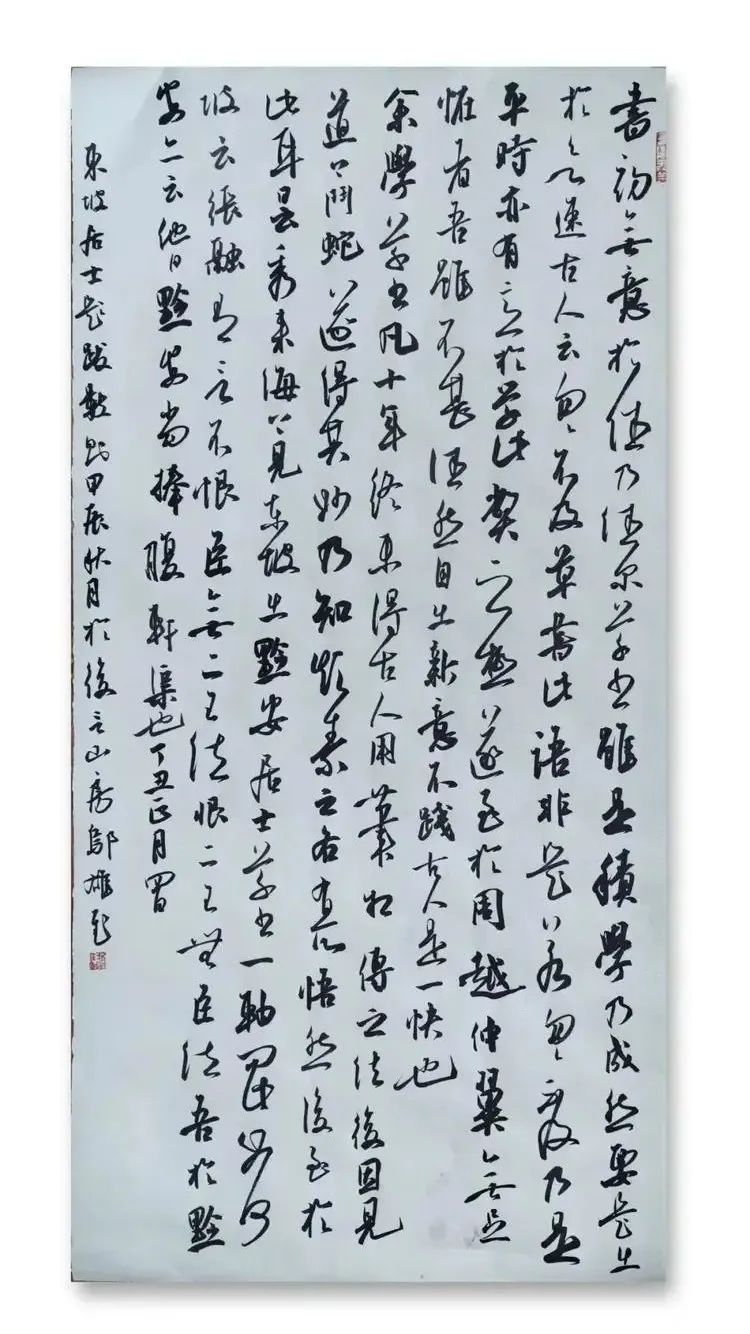 書初無意於佳乃佳尔草書雖是積學乃成然要是出
於欲速古人云匆匆不及草書此語非是若匆匆不及乃是
平時亦有意於學此弊之極遂至於周越仲翼無足
怪者吾雖不甚佳然自出新意不踐古人是一快也
余學草書凡十年終未得古人用筆相傳之法後因見
道上鬥蛇遂得其妙乃知顛素之各有所悟然後至於
此耳曇秀來海上見東坡出黔安居士草書一軸問此如何
坡云張融有言不恨臣無二王法恨二王無臣法吾於黔
安亦云他日黔安當捧腹軒渠也丁丑正月四日
東坡居士題跋數則甲辰秋月於後山房鄔雄